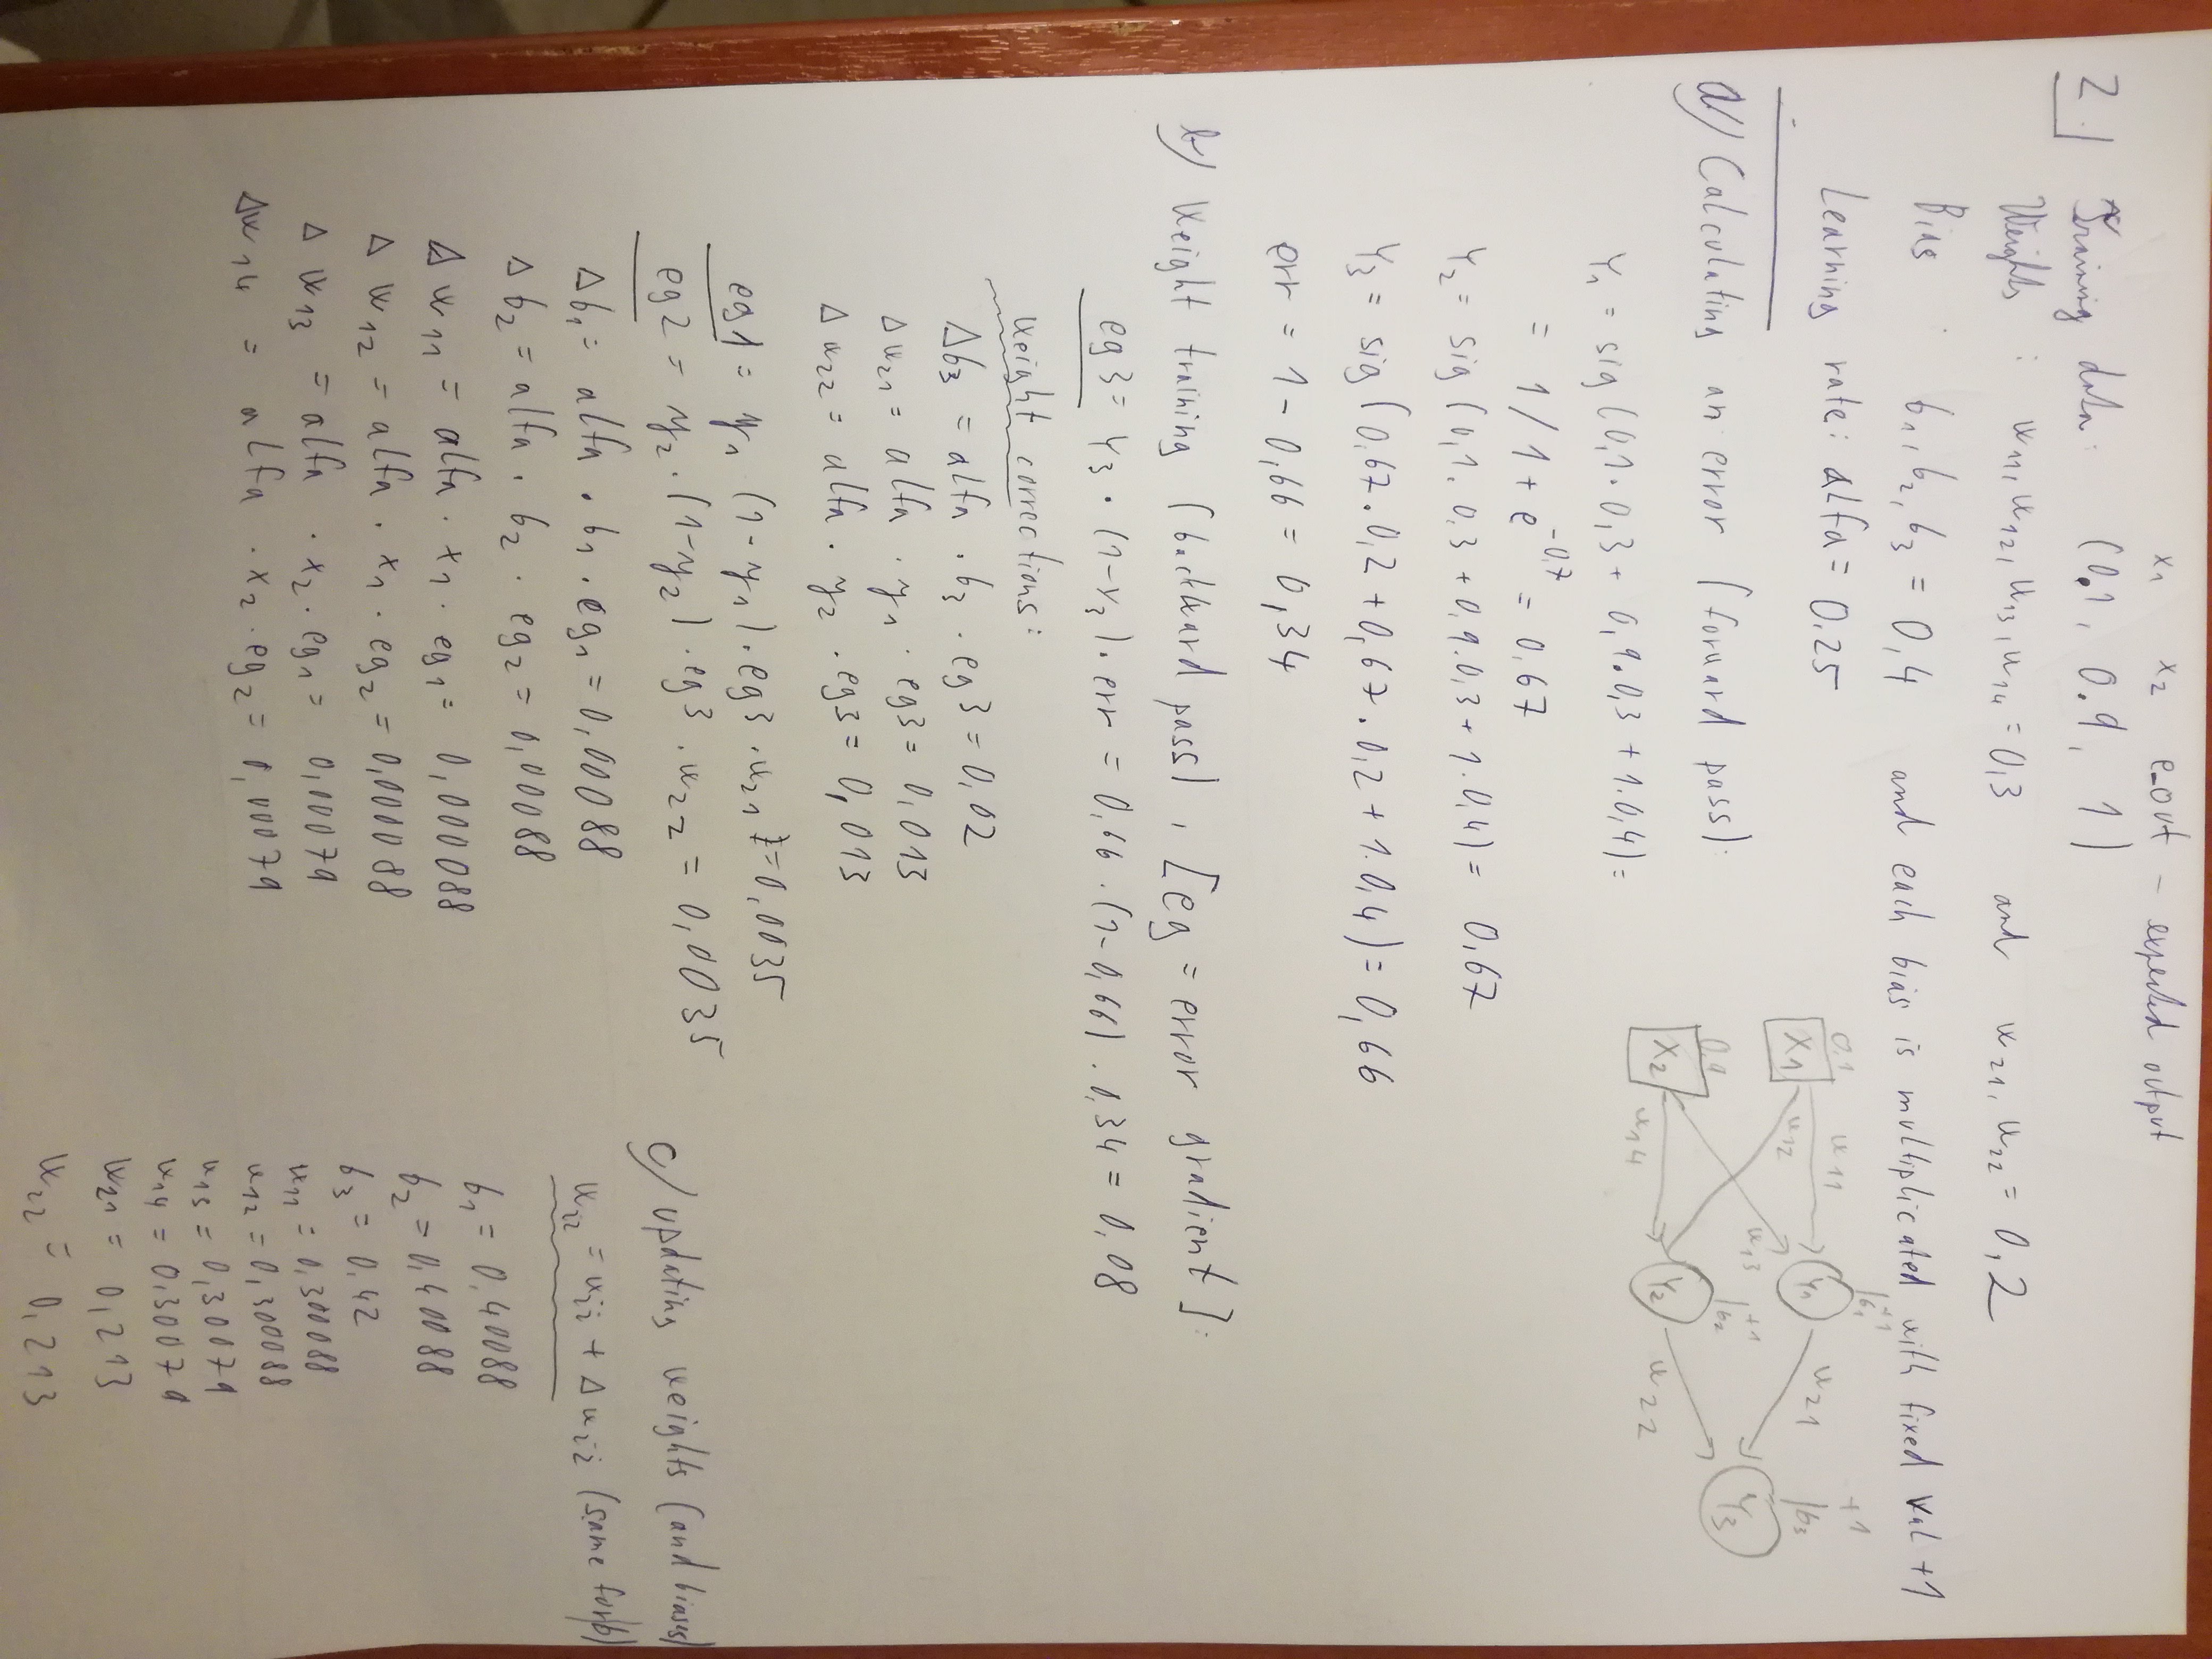 x1 x2 e_out - expected output
2.) Training data: (0.1, 0.9, 1)
Weights : w11, w12, w13, w14 = 0,3 and w21, w22 = 0,2
Bias : b1, b2, b3 = 0,4 and each bias is multiplicated with fixed val +1
Learning rate: alfa = 0.25
0,1 w11 +1 b1 Y1 w21 +1 b3
X1 w12 w13 Y3
0,9 +1 b2
X2 w14 Y2 w22
a) Calculating an error (forward pass):
Y1 = sig (0,1 . 0,3 + 0,9 . 0,3 + 1 . 0,4) =
= 1 / 1 + e^-0,7 = 0,67
Y2 = sig (0,1 . 0,3 + 0,9 . 0,3 + 1 . 0,4) = 0,67
Y3 = sig (0,67 . 0,2 + 0,67 . 0,2 + 1 . 0,4) = 0,66
err = 1 - 0,66 = 0,34
b) Weight training (backward pass), [eg = error gradient]:
eg3 = Y3 . (1-Y3) . err = 0,66 . (1-0,66) . 0,34 = 0,08
weight corrections:
Δb3 = alfa . b3 . eg3 = 0,02
Δw21 = alfa . y1 . eg3 = 0,013
Δw22 = alfa . y2 . eg3 = 0,013
eg1 = y1 (1-y1) . eg3 . w21 = 0,0035
eg2 = y2 . (1-y2) . eg3 . w22 = 0,0035
Δb1 = alfa . b1 . eg1 = 0,00088
Δb2 = alfa . b2 . eg2 = 0,00088
Δw11 = alfa . x1 . eg1 = 0,000088
Δw12 = alfa . x1 . eg2 = 0,000088
Δw13 = alfa . x2 . eg1 = 0,00079
Δw14 = alfa . x2 . eg2 = 0,00079
c) updating weights (and biases)
wii = wii + Δwii (same for b)
b1 = 0,40088
b2 = 0,40088
b3 = 0,42
w11 = 0,300088
w12 = 0,300088
w13 = 0,30079
w14 = 0,30079
w21 = 0,213
w22 = 0,213